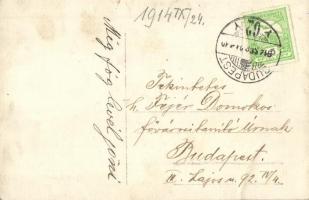 1914 IX/24.
Még fog levél jönni
BUDAPEST
Tekintetes
Fejér Domokos
fővárosi tanító Úrnak
Budapest.
Lajos u. 92. IV/4.